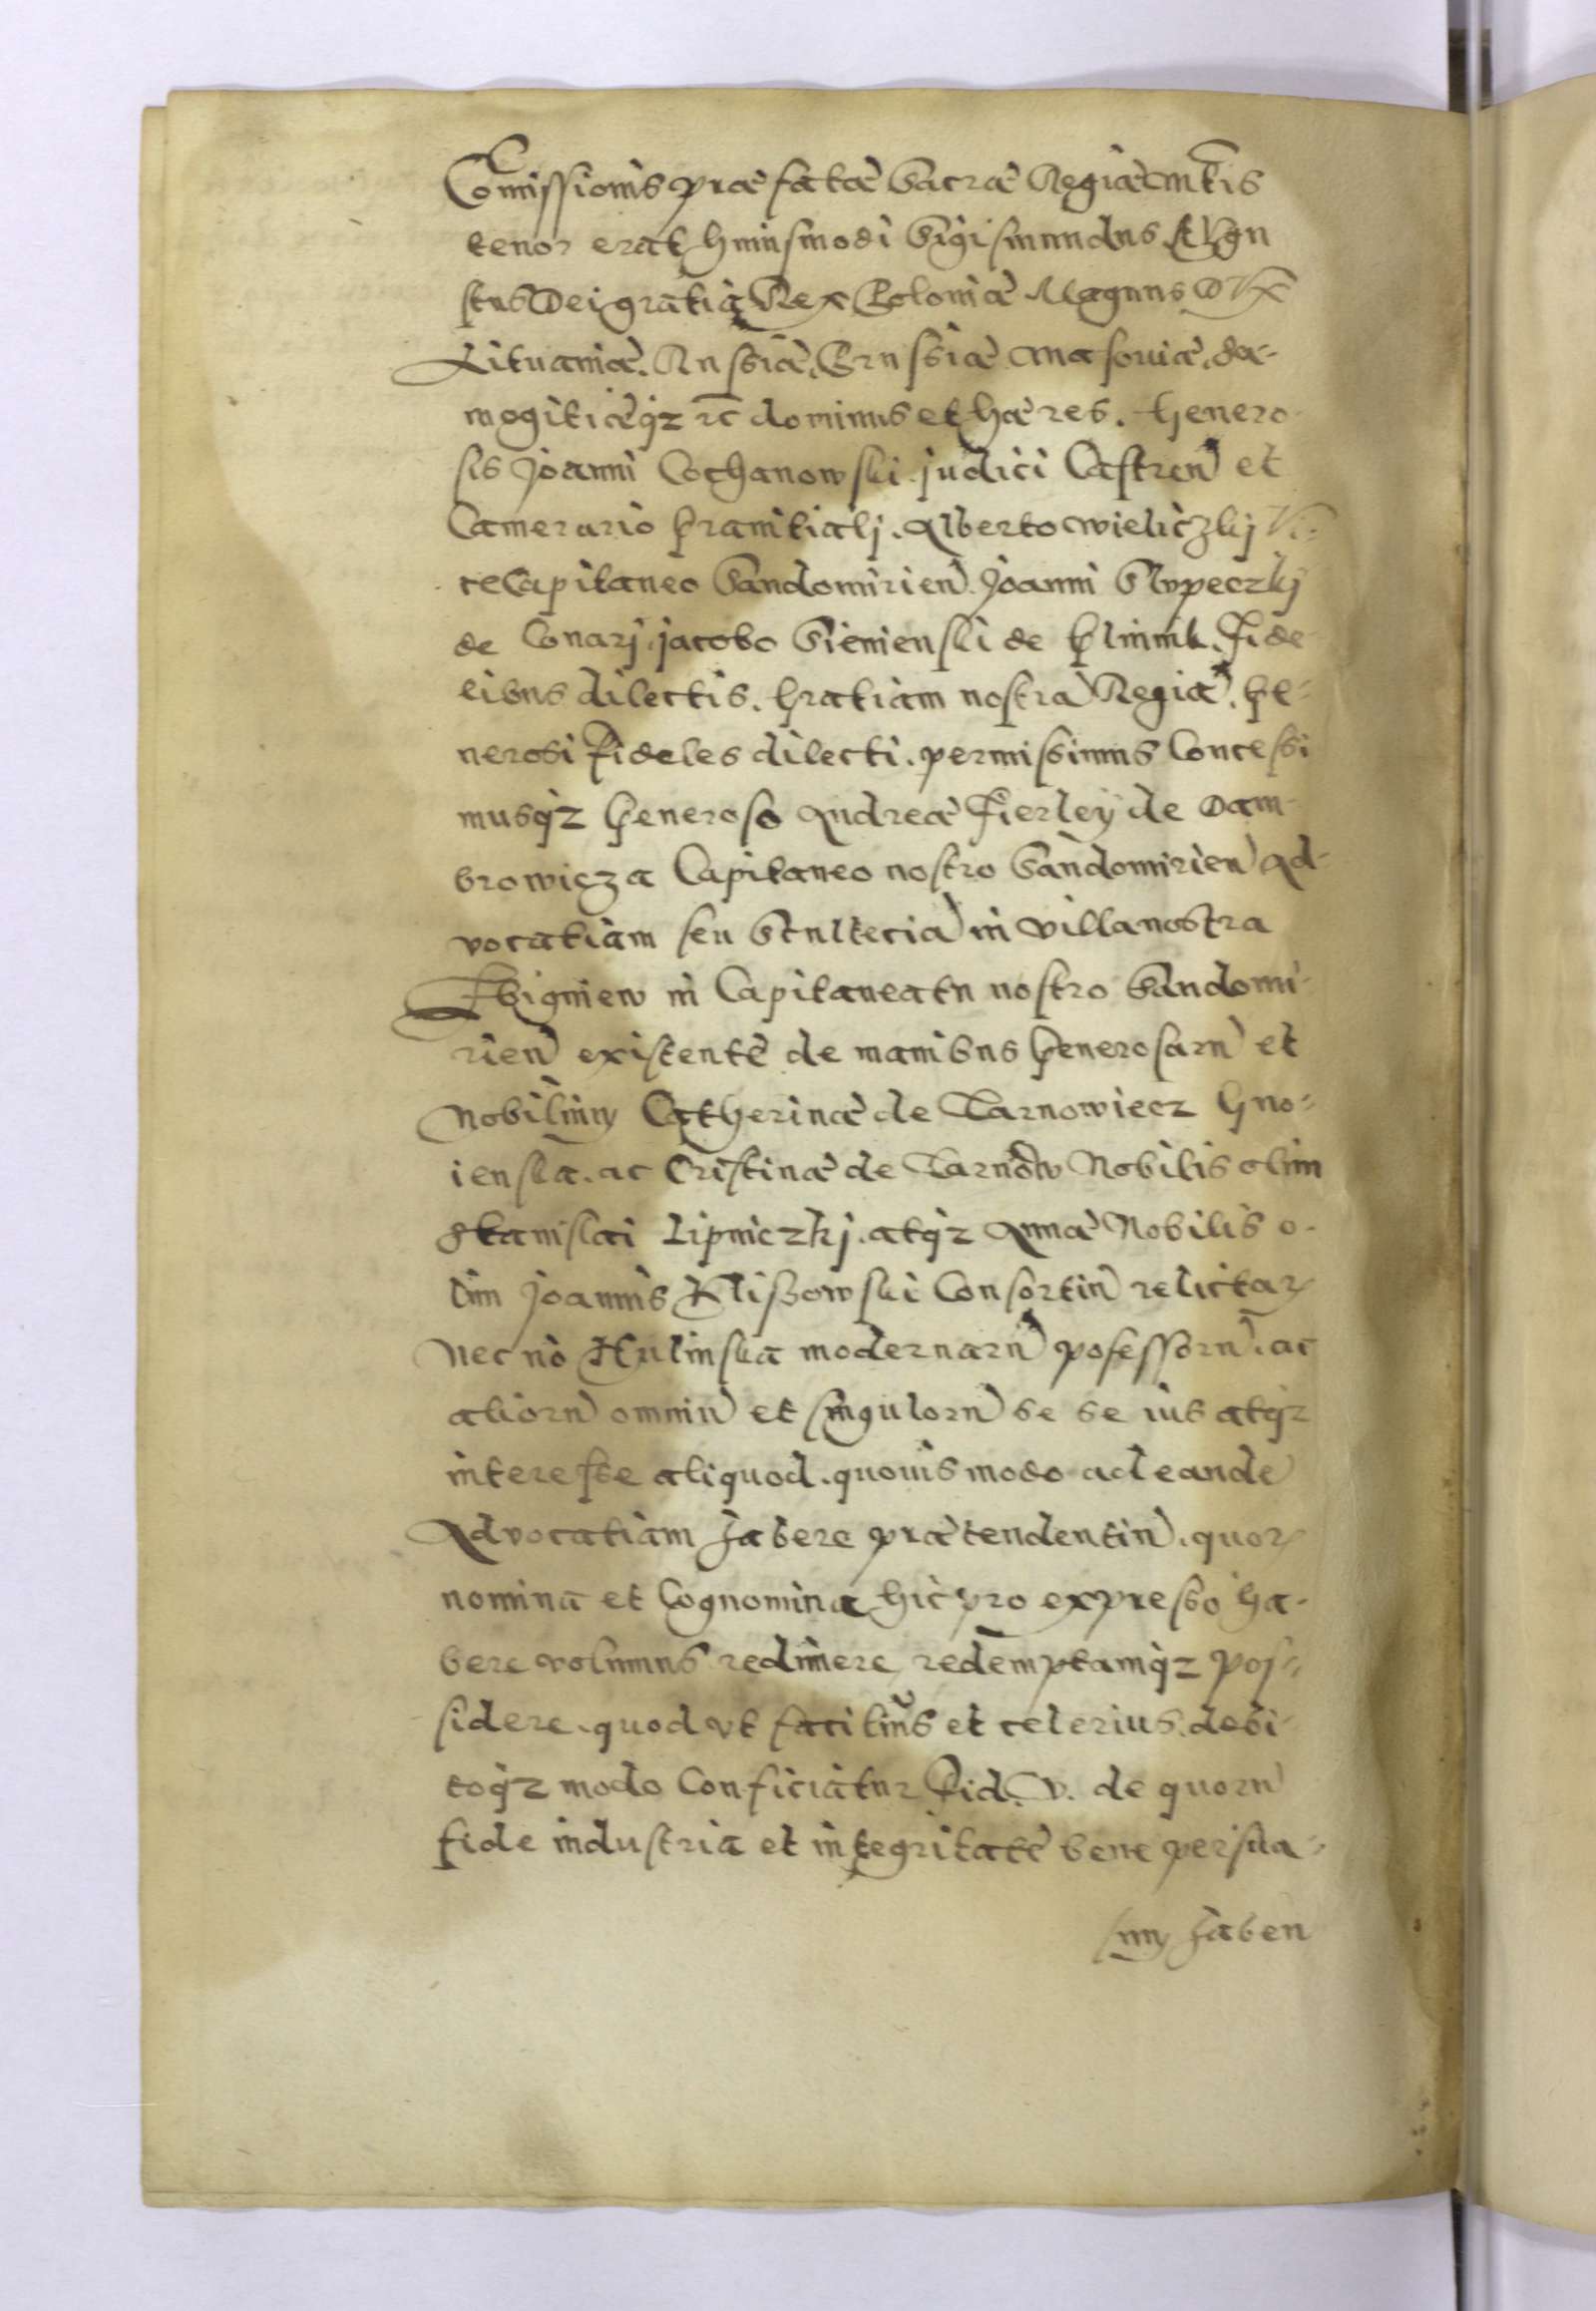 Comissionis præfatæ Sacræ Regiæ Mtis
tenor erat huiusmodi Sigismundus Augu
stus Dei gratia Rex Poloniæ Magnus DVX
Lituaniæ. Russiæ, Prussiæ Masoviæ, Sa-
mogitiæqz rc dominus et hæres. Genero
sis Joanni Cochanowski judici Castren et
Camerario Granitialj. Alberto Wieliczkij Vi-
ceCapitaneo Sandomirien. Joanni Slvpeczkj
de Conarj jacobo Sienienski de Fide
libus dilectis. Gratiam nostrã Regiã. Ge-
nerosi Fideles dilecti. permissimus Concessi
musqz Generoso Andreæ Fierleÿ de Dam-
browicza Capitaneo nostro Sandomirien Ad-
vocatiam seu Scultetiã in villa nostra
Zbigniew in Capitaneatu nostro Sandomi-
rien existentẽ de manibus Generosarũ et
Nobilium Catherinæ de Tarnowiecz Gno-
ienska. ac Cristinæ de Tarnow Nobilis olim
Stanislai Lipniczkj. atqz Annæ Nobilis o-
lim Joannis Klissowski Consortiũ relictarum
Nec nõ Hulinska modernarũ posessorũ. ac
aliorũ omniũ et singulorũ se se ius atqz
interesse aliquod. quouis modo ad eandẽ
Advocatiam habere prætendentiũ. quorum
nomina et Cognomina hic pro expresso ha-
bere volumus redimere redemptamqz pos-
sidere. quod vt facilius et celerius. debi-
toqz modo Conficiatur Fid. V. de quorũ
fide industria et integritatẽ bene persua-
sum haben